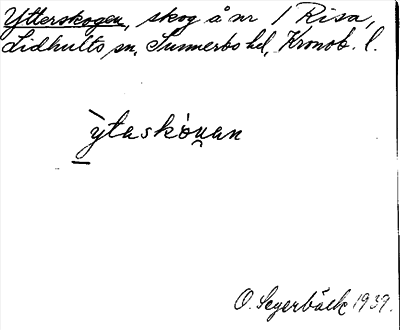 Ytterskogen, skog å nr 1 Risa,
Lidhults sn, Sunnerbo hd, Kronob. l.
ỳtaskóu̯an
O. Segerbäck 1939.